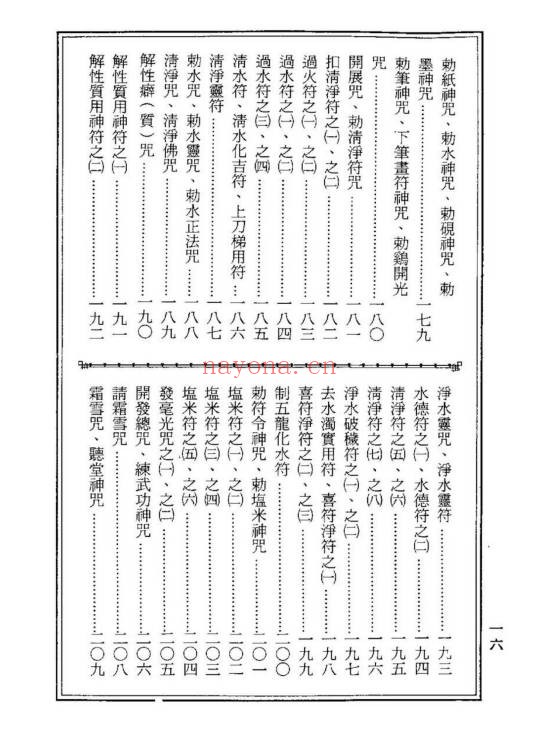 勅紙神咒、勅水神咒、勅硯神咒、勅
墨神咒…………一七九
勅筆神咒、下筆畫符神咒、勅鷄開光
咒…………一八〇
開展咒、勅淸淨符咒…………一八一
扣淸淨符之㈠、之㈡…………一八二
過火符之㈠、之㈡…………一八三
過水符之㈠、之㈡…………一八四
過水符之㈢、之㈣…………一八五
淸水符、淸水化吉符、上刀梯用符…一八六
淸淨靈符…………一八七
勅水咒、勅水靈咒、勅水正法咒……一八八
淸淨咒、淸淨佛咒…………一八九
解性癖（質）咒…………一九〇
解性質用神符之㈠…………一九一
解性質用神符之㈡…………一九二
淨水靈咒、淨水靈符…………一九三
水德符之㈠、水德符之㈡…………一九四
淸淨符之㈤、之㈥…………一九五
淸淨符之㈦、之㈧…………一九六
淨水破穢符之㈠、之㈡…………一九七
去水濁實用符、喜符淨符之㈠……一九八
喜符淨符之㈡、之㈢…………一九九
制五龍化水符…………二〇〇
勅符令神咒、勅塩米神咒…………二〇一
塩米符之㈠、之㈡…………二〇二
塩米符之㈢、之㈣…………二〇三
塩米符之㈤、之㈥…………二〇四
發毫光咒之㈠、之㈡…………二〇五
開發總咒、練武功神咒…………二〇六
請霜雪咒…………二〇八
霜雪咒、聽堂神咒…………二〇九
一六
nayona.cn